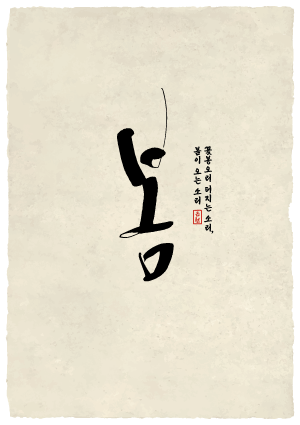 봄
꽃봉오리 터지는 소리,
봄이 오는 소리